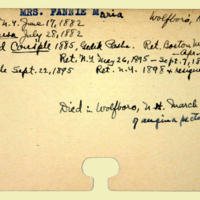 MRS. FANNIE Maria
Wolfboro, N
N.Y. June 17, 1882
July 28, 1882
1885, Gedik Pasha. Ret. Boston M
Ret. N.Y. May 26, 1895 - Sept. 7, 18
Sept. 22, 1895 Ret. N.Y. 1898 & resigne
Died :- Wolfboro, N.H. March
of angina pecto